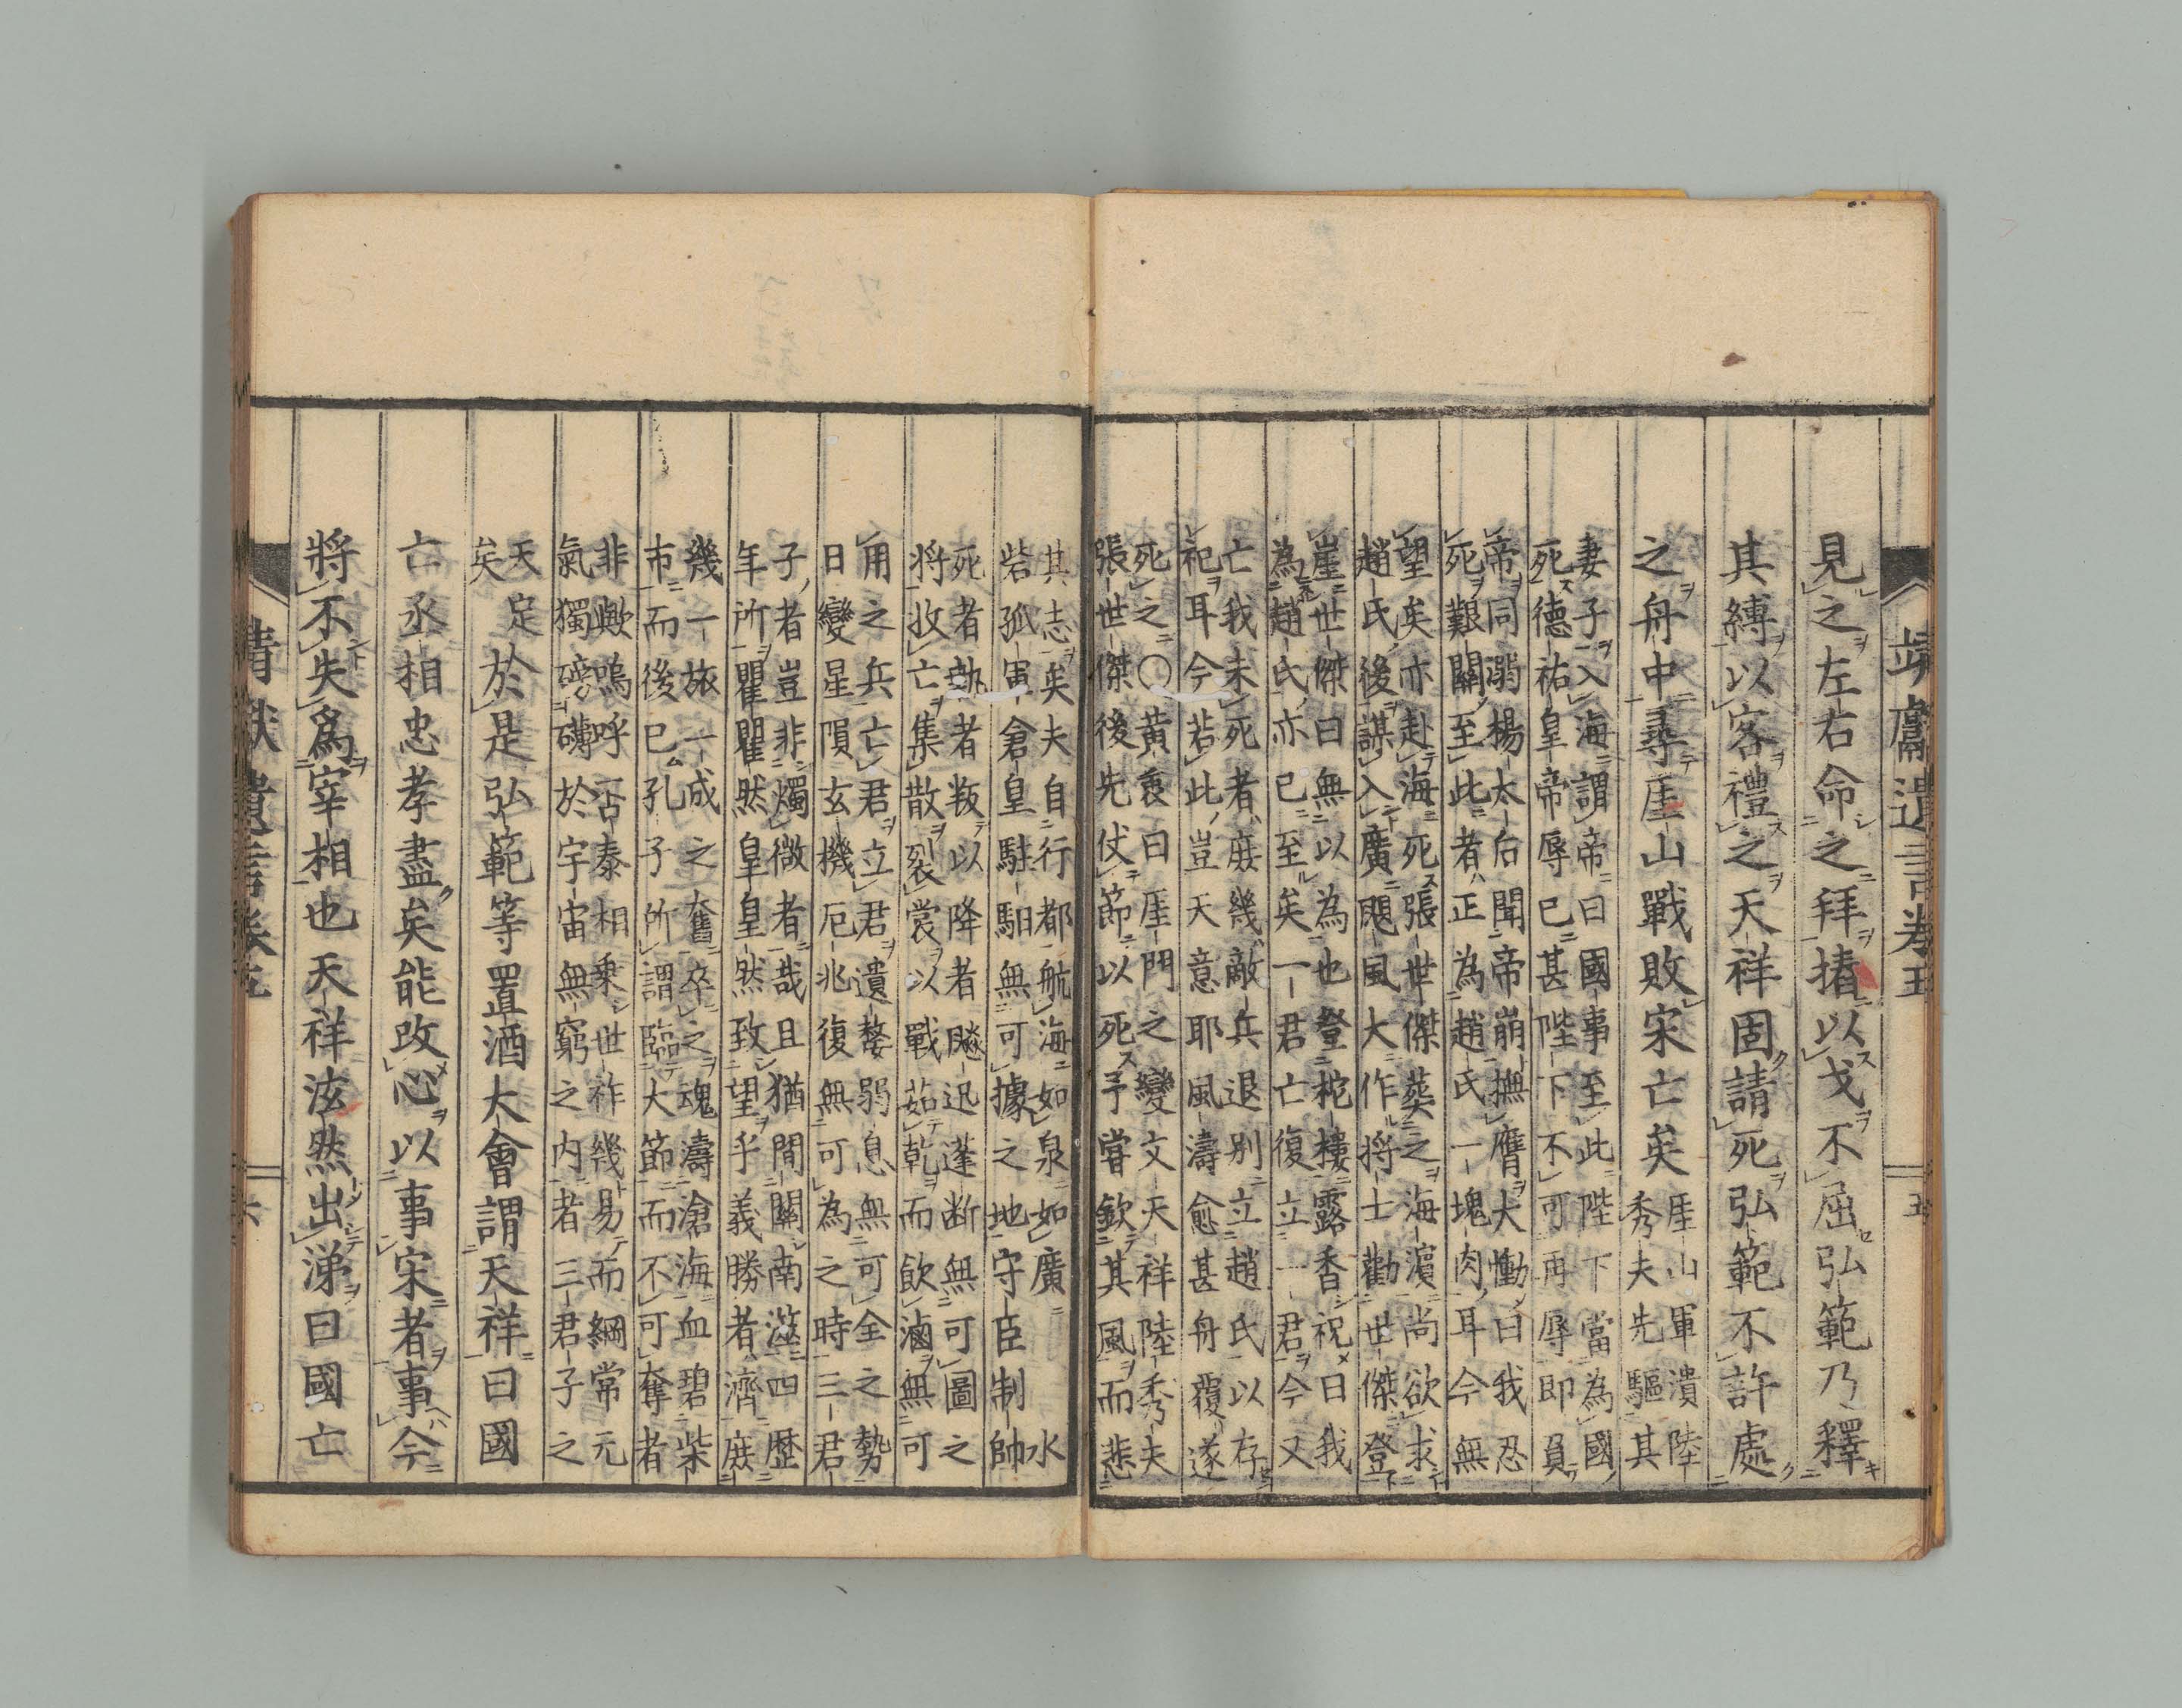 見之左右命之拜摏以戈不屈弘範乃釋
其縛以客禮之天祥固請死弘範不許處
之舟中尋厓山戰敗宋亡矣
厓山軍潰陸
秀夫先驅其
妻子入海謂帝曰國事至此陛下當為國
死德祐皇帝辱已甚陛下不可再辱即負
帝同溺楊太后聞帝崩撫膺大慟曰我忍
死艱關至此者正為趙氏一塊肉耳今無
望矣亦赴海死張世傑葬之海濱尚欲求
趙氏後謀入廣颶風大作將士勸世傑登
崖世傑曰無以為也登柁樓露香祝曰我
為趙氏亦已至矣一君亡復立一君今又
亡我未死者庶幾敵兵退別立趙氏以存
祀耳今若此豈天意耶風濤愈甚舟覆遂
死之〇黃袠曰厓門之變文天祥陸秀夫
張世傑後先仗節以死予嘗欽其風而悲
其志矣夫自行都航海如泉如廣水
砦孤軍倉皇駐駐無可據之地守臣制帥
死者執者叛以降者颷迅蓬斷無可圖之
將收亡集散裂裳以戰茹乾而飲滷無可
用之兵亡君立君遺嫠弱息無可全之勢
日變星隕玄機厄兆復無可為之時三君
子者豈非燭微者哉且猶間關南澨四歷
年所瞿瞿然皇皇然致望乎義勝者濟庶
幾一旅一成之奮卒之魂濤滄海血碧柴
市而後已孔子所謂臨大節而不可奪者
非歟嗚呼否泰相乗世祚幾易而綱常元
氣獨磅礴於宇宙無窮之内者三君子之
天定
矣
於是弘範等置酒大會謂天祥曰國
亡丞相忠孝盡矣能改心以事宋者事今
將不失爲宰相也天祥泫然出涕曰國亡
六